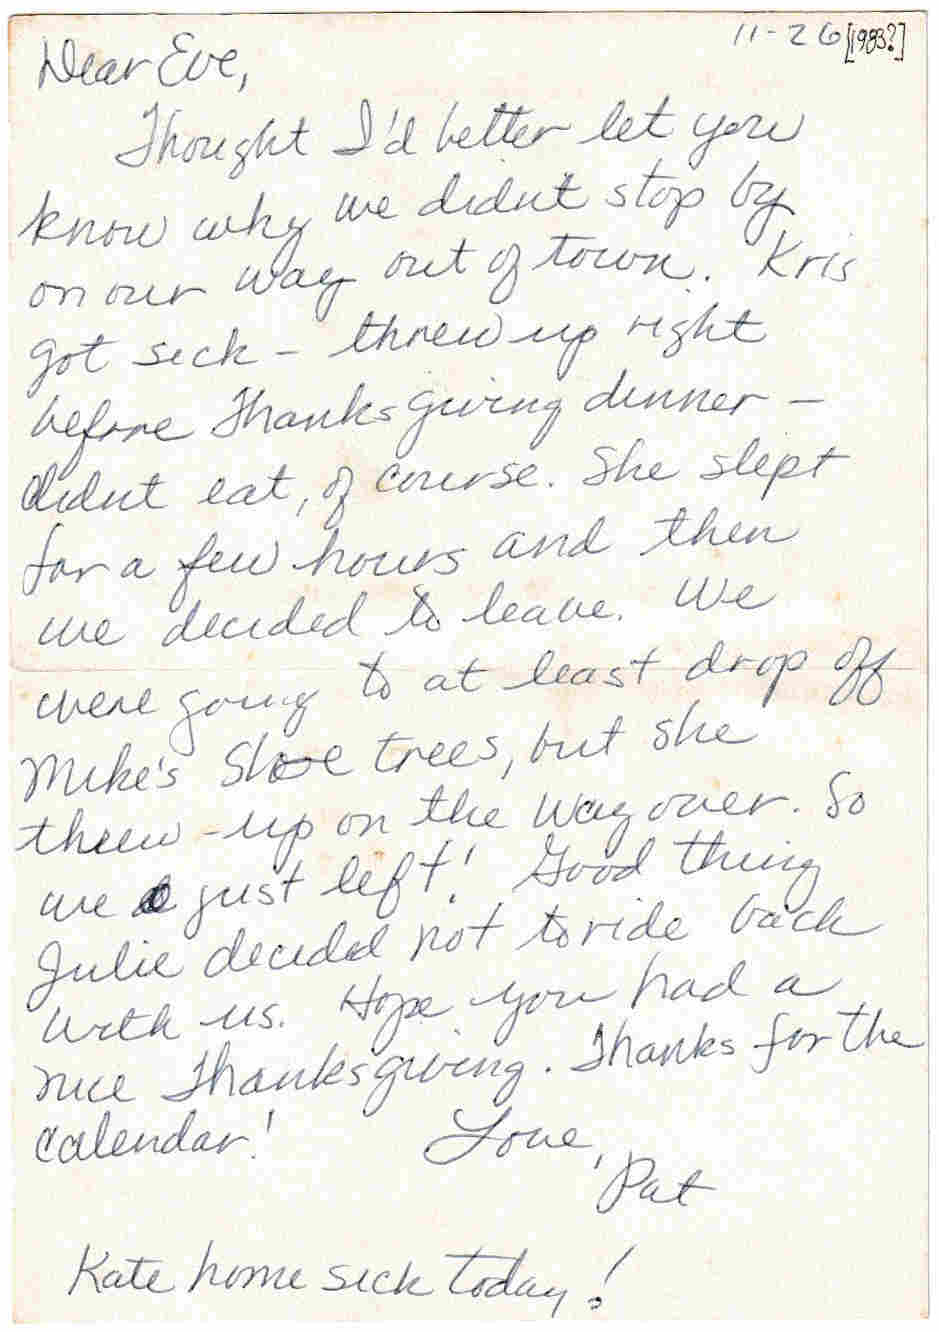 11-26 [1983?]
Dear Eve,
Thought I'd better let you
know why we didn't stop by
on our way out of town. Kris
got sick - threw up right
before Thanksgiving dinner -
didnt eat, of course. She slept
for a few hours and then
we decided to leave. We
were going to at least drop off
Mike's shoe trees, but she
threw-up on the way over. So
we just left! Good thing
Julie decided not to ride back
with us. Hope you had a
nice Thanksgiving. Thanks for the
calendar!
Love,
Pat
Kate home sick today!